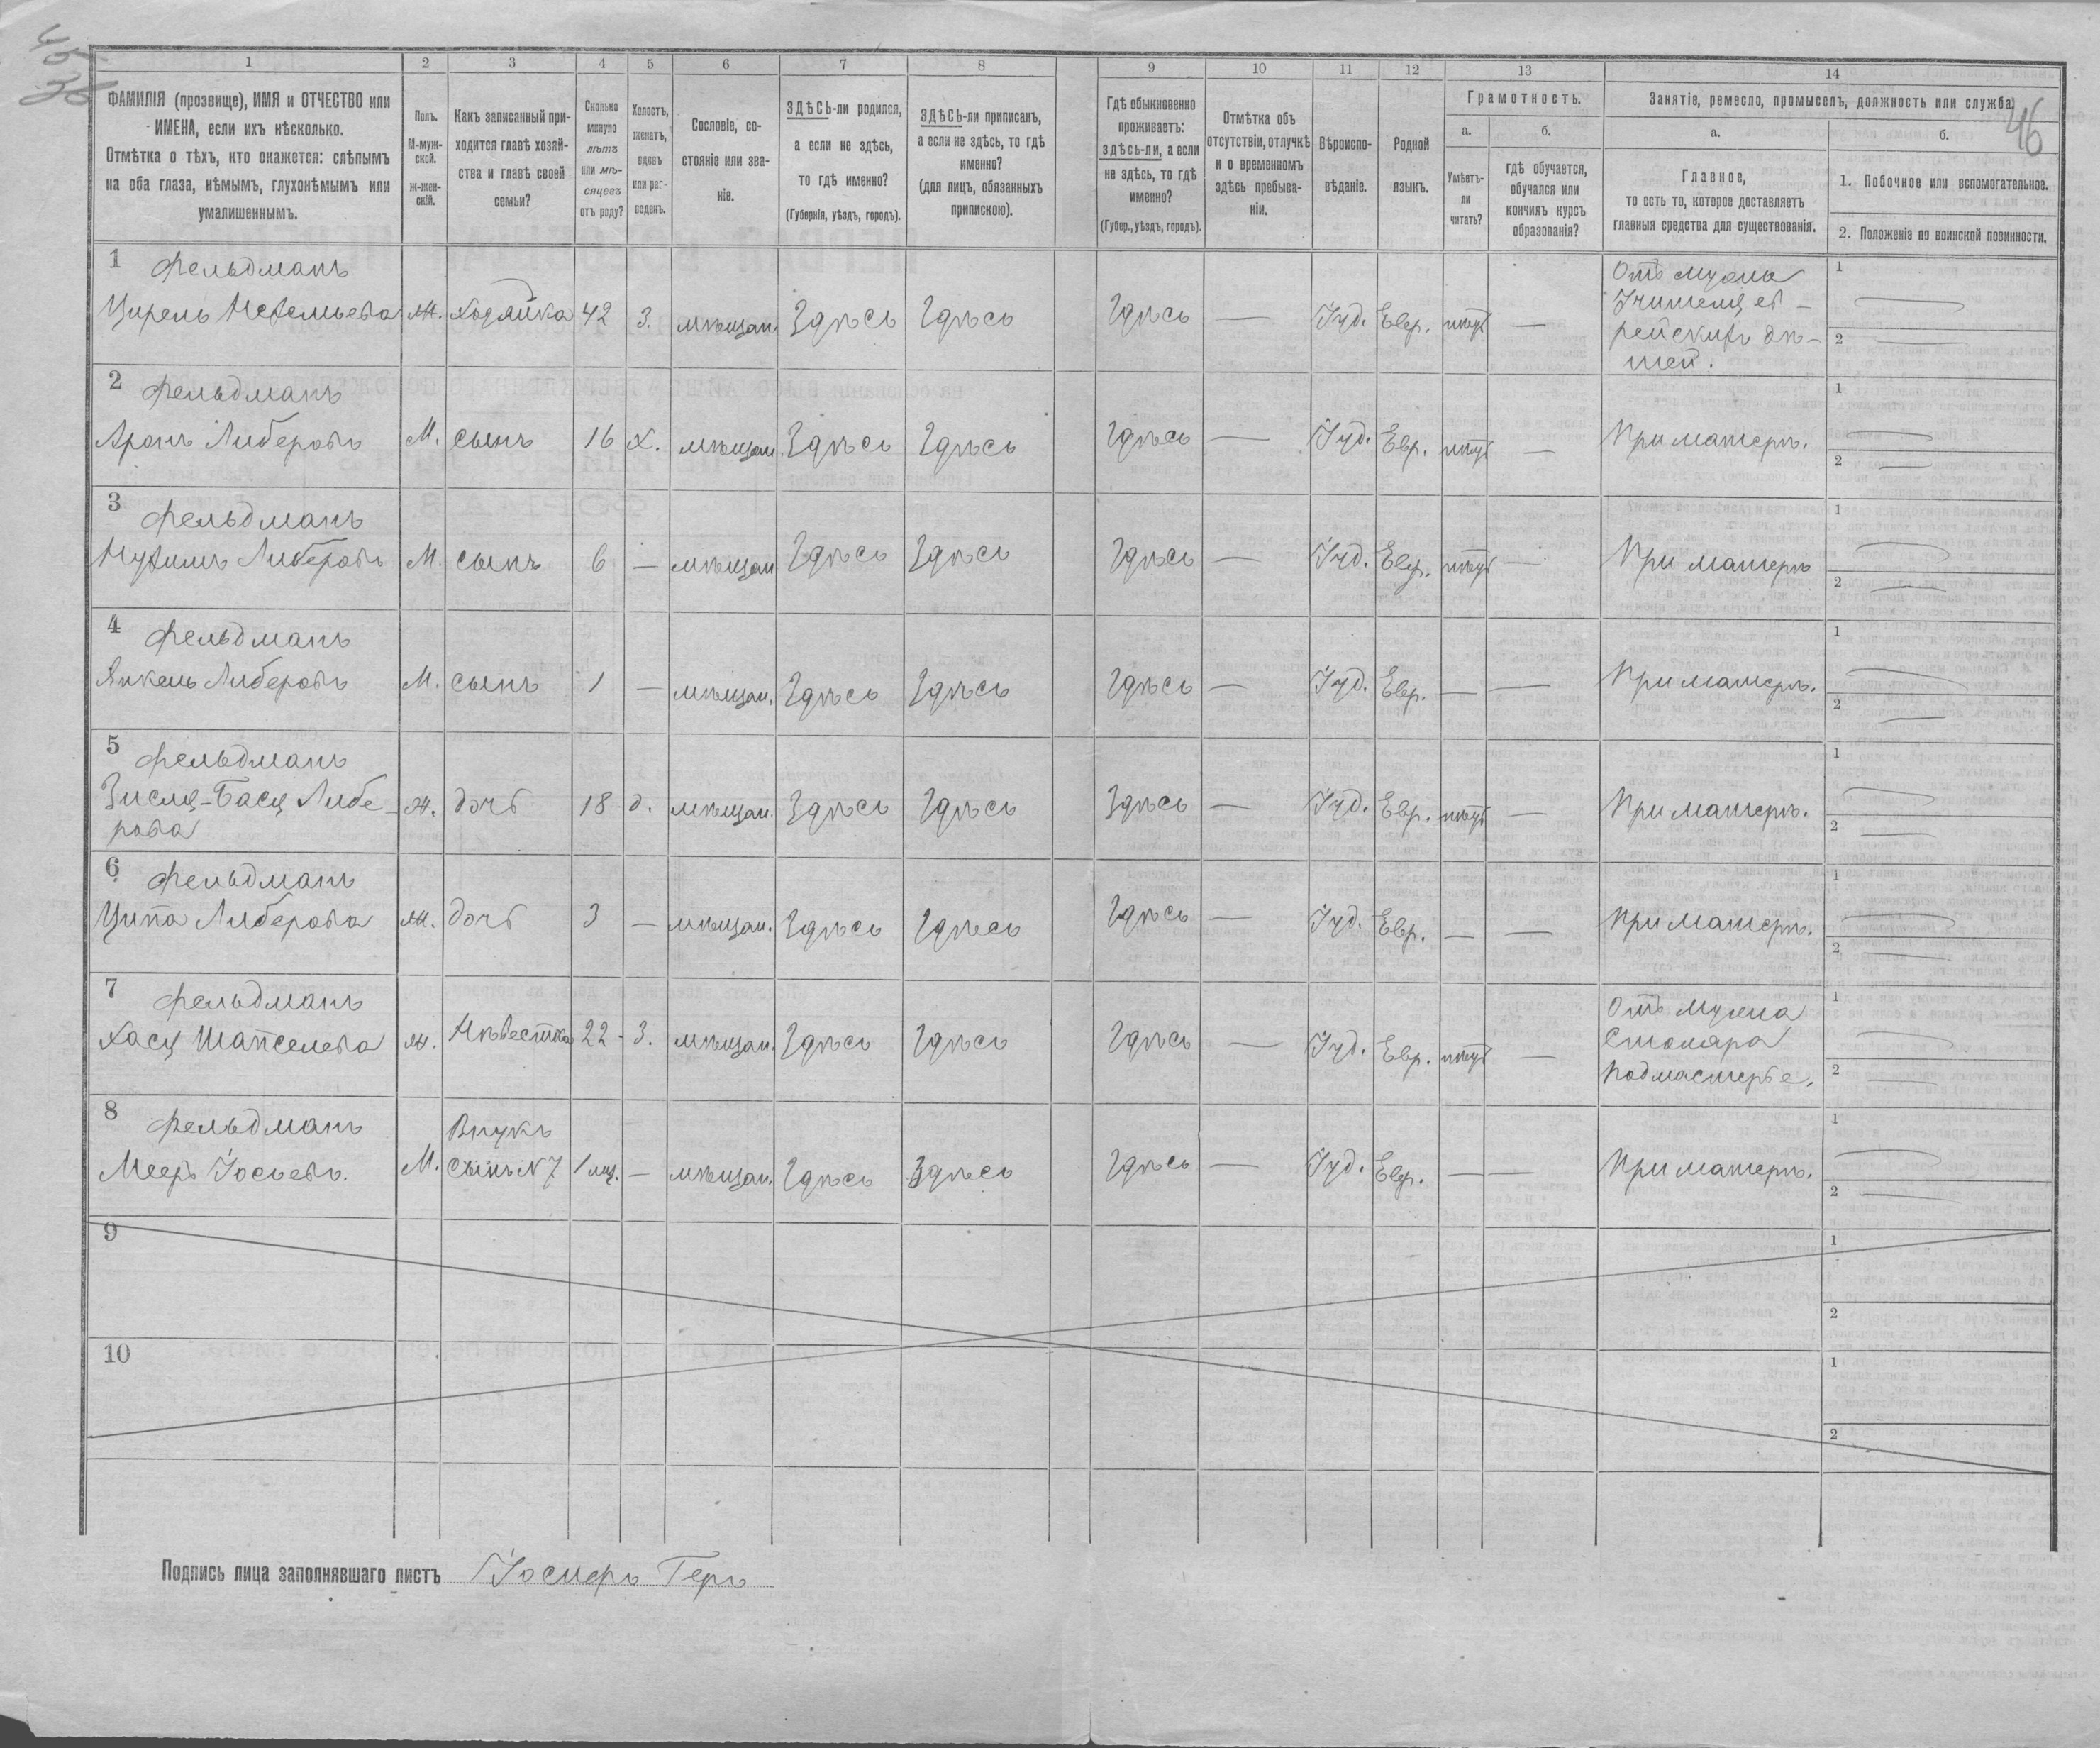 45
36
46
1 2 3 4 5 6 7 8 9 10 11 12 13 14
ФАМИЛІЯ (прозвище), ИМЯ и ОТЧЕСТВО или
ИМЕНА, если ихъ нѣсколько.
Отмѣтка о тѣхъ, кто окажется: слѣпымъ
на оба глаза, нѣмымъ, глухонѣмымъ или
умалишеннымъ.
Полъ.
М-муж-
ской.
ж-жен-
скій.
Какъ записанный при-
ходится главѣ хозяй-
ства и главѣ своей
семьи?
Сколько
минуло
лѣтъ
или мѣ-
сяцевъ
отъ роду?
Холостъ,
женатъ,
вдовъ
или раз-
веденъ.
Сословіе, со-
стояніе или зва-
ніе.
ЗДѢСЬ-ли родился,
а если не здѣсь,
то гдѣ именно?
(Губернія, уѣздъ, городъ).
ЗДѢСЬ-ли приписанъ,
а если не здѣсь, то гдѣ
именно?
(для лицъ, обязанныхъ
припискою).
Гдѣ обыкновенно
проживаетъ:
здѣсь-ли, а если
не здѣсь, то гдѣ
именно?
(Губер., уѣздъ, городъ).
Отмѣтка объ
отсутствіи, отлучкѣ
и о временномъ
здѣсь пребыва-
ніи.
Вѣроиспо-
вѣданіе.
Родной
языкъ.
Грамотность.
а.
Умѣетъ-
ли
читать?
б.
гдѣ обучается,
обучался или
кончилъ курсъ
образованія?
Занятіе, ремесло, промыселъ, должность или служба
а.
Главное,
то есть то, которое доставляетъ
главныя средства для существованія.
б.
1. Побочное или вспомогательное.
2. Положеніе по воинской повинности.
1 Фельдманъ
Цирель ж. хозяйка 42 З. мѣщан. Здѣсь Здѣсь Здѣсь — Іуд. Евр. — Отъ мужа
Учителя ев-
рейскихъ дѣ-
тей.
1 —
2 —
2 Фельдманъ
Аронъ Либеровъ М. сынъ 16 х. мѣщан Здѣсь Здѣсь Здѣсь — Іуд. Евр. — При матерѣ.
1 —
2 —
3 Фельдманъ
Либеровъ М. сынъ 6 — мѣщан Здѣсь Здѣсь Здѣсь — Іуд. Евр. — При матерѣ
1 —
2 —
4 Фельдманъ
Янкель Либеровъ М. сынъ 1 — мѣщан. Здѣсь Здѣсь Здѣсь — Іуд. Евр. — — При матерѣ.
1 —
2 —
5 Фельдманъ
Зисля-Бася Либе-
рова ж. дочь 18 д. мѣщан. Здѣсь Здѣсь Здѣсь — Іуд. Евр. — При матерѣ.
1 —
2 —
6 Фельдманъ
Ципа Либерова ж. дочь 3 — мѣщан. Здѣсь Здѣсь Здѣсь — Іуд. Евр. — — При матерѣ.
1 —
2 —
7 Фельдманъ
Хася Шапселева ж. Нѣвестка 22 - З. мѣщан. Здѣсь Здѣсь Здѣсь — Іуд. Евр. — Отъ мужа
Столяра
Подмастерье.
1 —
2 —
8 Фельдманъ
Мееръ Іосьевъ. М. Внукъ
Сынъ N 7 1 мц. — мѣщан. Здѣсь Здѣсь Здѣсь — Іуд. Евр. — — При матерѣ.
1 —
2 —
9
1
2
10
1
2
Подпись лица заполнявшаго листъ Іосифъ Геръ